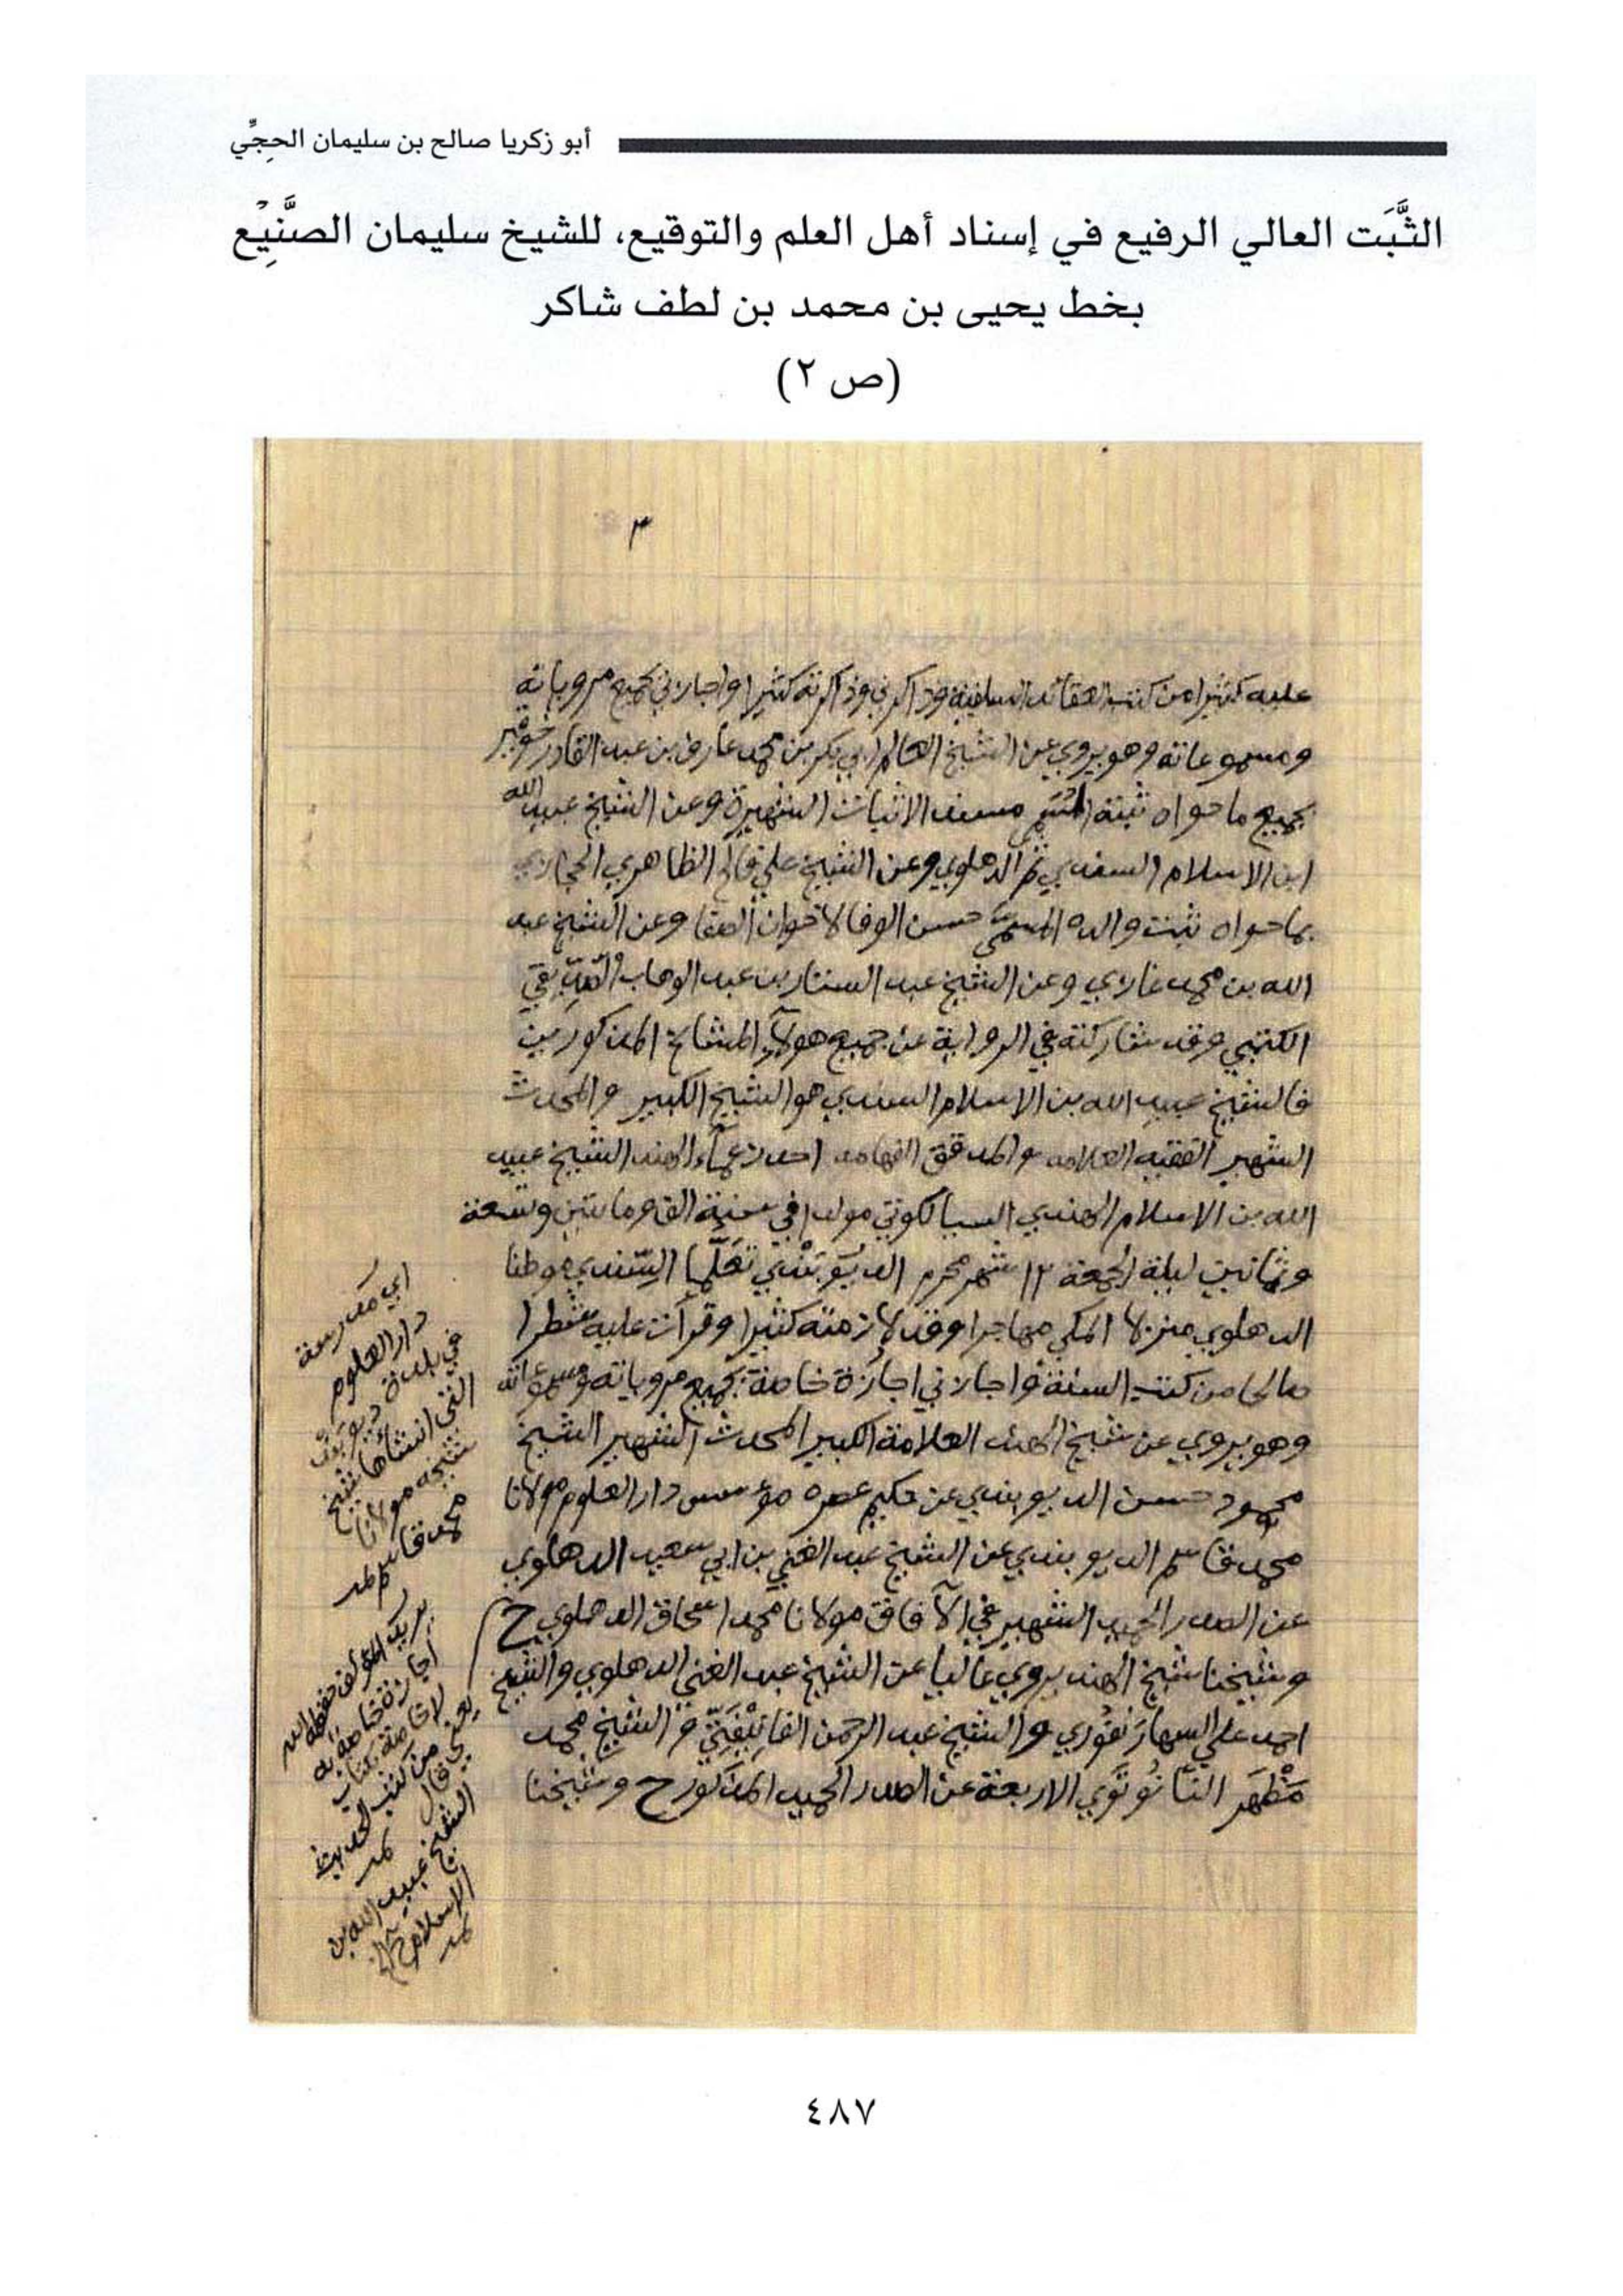 أبو زكريا صالح بن سليمان الحجِّي
الثَّبَت العالي الرفيع في إسناد أهل العلم والتوقيع، للشيخ سليمان الصَّنِيْع
بخط يحيى بن محمد بن لطف شاكر
(ص ٢)
٣
عليه كثيرا من كتب العقائد السلفية وذاكرني وذاكرته كثيرا واجازني بجميع مروياته
ومسموعاته وهو يروي عن الشيخ العالم ابي بكر بن محمد عارف بن عبد القادر خوقير
بجميع ما حواه ثبته المسمى مسند الاثبات الشهيرة وعن الشيخ عبيد الله
ابن الاسلام السندي ثم الدهلوي وعن الشيخ علي فالح الظاهري الحجازي
بما حواه ثبت والده المسمى حسن الوفا لاخوان الصفا وعن الشيخ عبد
الله بن محمد غازي وعن الشيخ عبد الستار بن عبد الوهاب الصديقي
الكتبي وقد شاركته في الرواية عن جميع هولآء المشائخ المذكورين
فالشيخ عبيد الله بن الاسلام السندي هو الشيخ الكبير والمحدث
الشهير الفقيه العلامه والمدقق الفهامه احد زعماء الهند الشيخ عبيد
الله بن الاسلام الهندي السيالكوتي مولدا في سنة الف ومائتين وتسعة
وثمانين ليلة الجمعة ١٢ شهر محرم الديوبندي تعلما السندي موطنا
الدهلوي منزلا المكي مهاجرا وقد لازمته كثيرا وقرأت عليه شطرا
صالحا من كتب السنة واجازني اجازة خاصة بجميع مروياته ومسموعاته
وهو يروي عن شيخ الهند العلامة الكبير المحدث الشهير الشيخ
محمود حسن الديوبندي عن حكيم عصره مؤسس دار العلوم مولانا
محمد قاسم الديوبندي عن الشيخ عبد الغني بن ابي سعيد الدهلوي
عن الصدر الحميد الشهير في الآفاق مولانا محمد اسحاق الدهلوي ح
وشيخنا شيخ الهند يروي عاليا عن الشيخ عبد الغني الدهلوي والشيخ
احمد علي السهارنفوري والشيخ عبد الرحمن الفانيفتي والشيخ محمد
مظهر النانوتوي الاربعة عن الصدر الحميد المذكور ح وشيخنا
اي مدرسة
دار العلوم
في بلدة ديوبند
التي انشأها شيخ
شيخه مولانا
محمد قاسم
يريد المؤلف حفظه الله
اجازة خاصة به
لا خاصة بكتاب
من كتب الحديث
يعني قال
الشيخ عبيد الله بن
الاسلام
٤٨٧